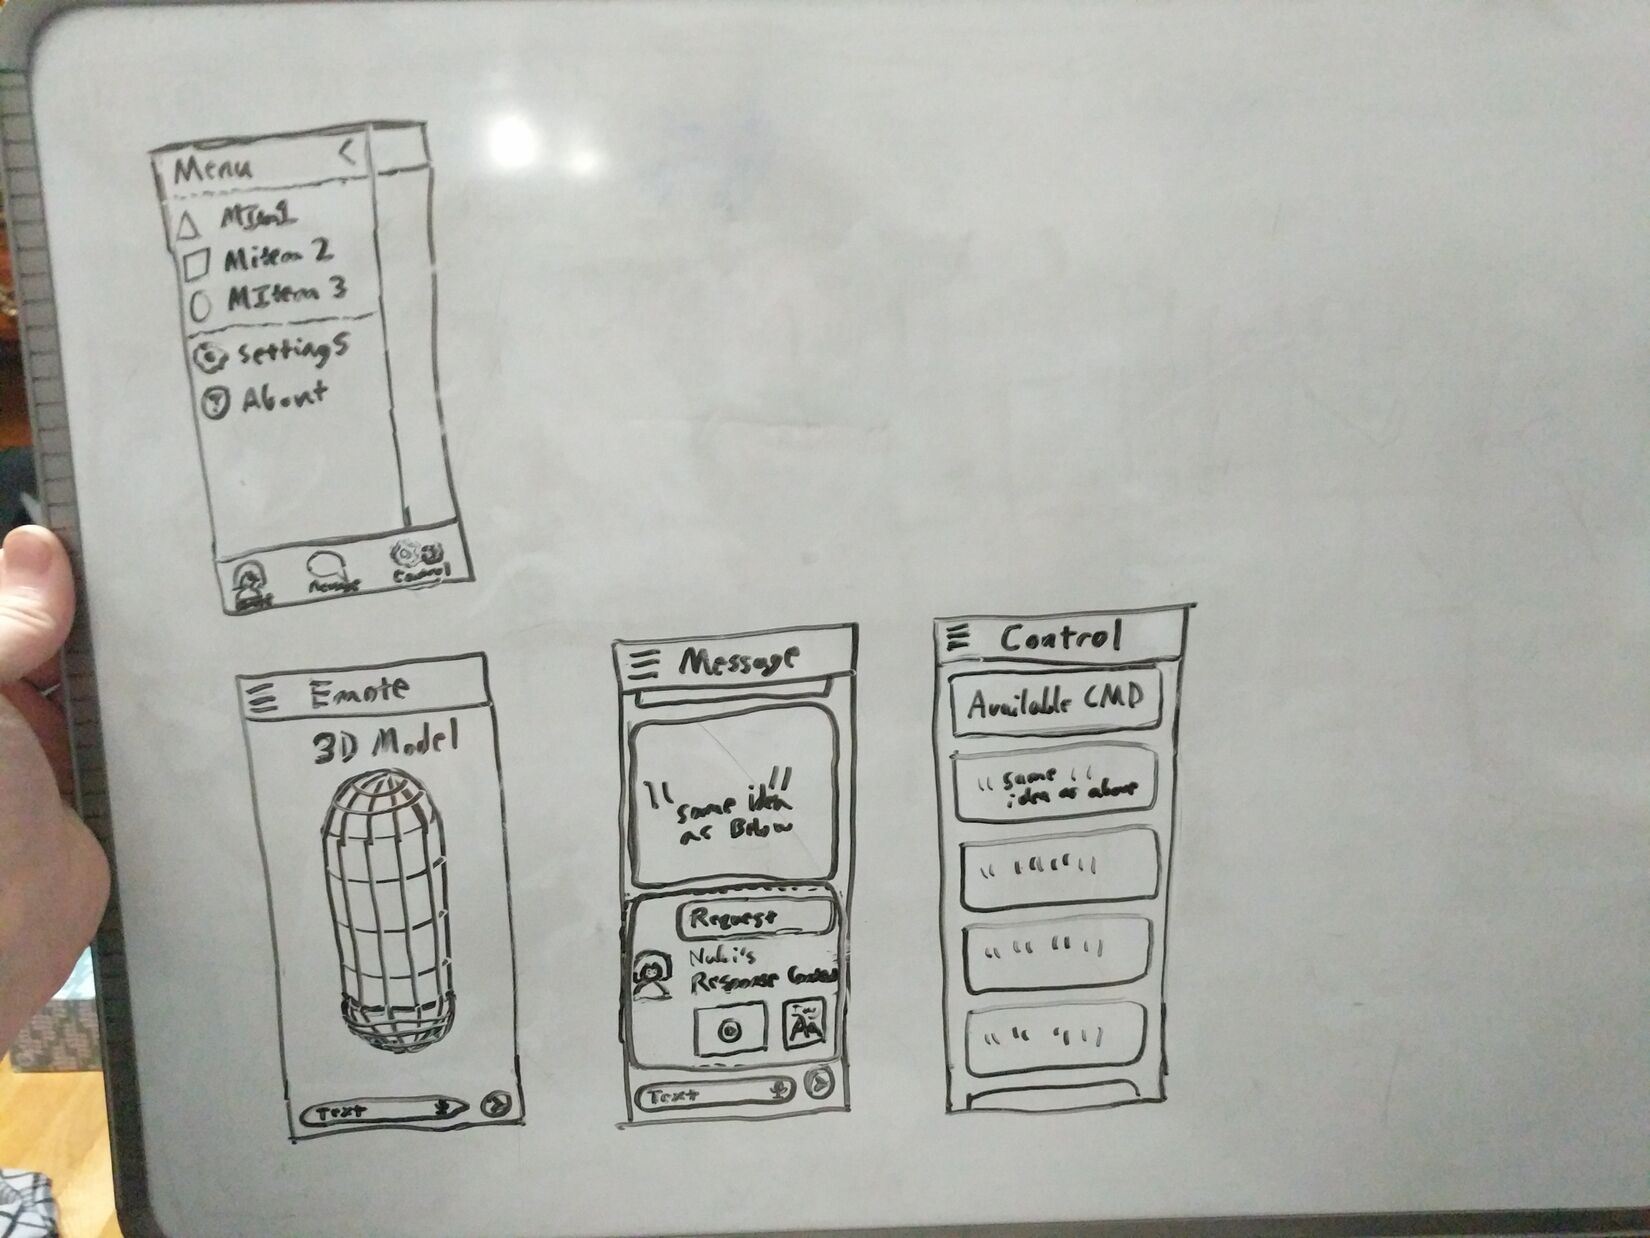 Menu <
MItem1
Mitem 2
MItem 3
settings
? About
Message
Control
Emote
3D Model
Text
Message
" same idea "
as Below
Request
Response Content
Aa
Text
Control
Available CMD
" same "
idea as above
" " " "
" " " "
" " " "